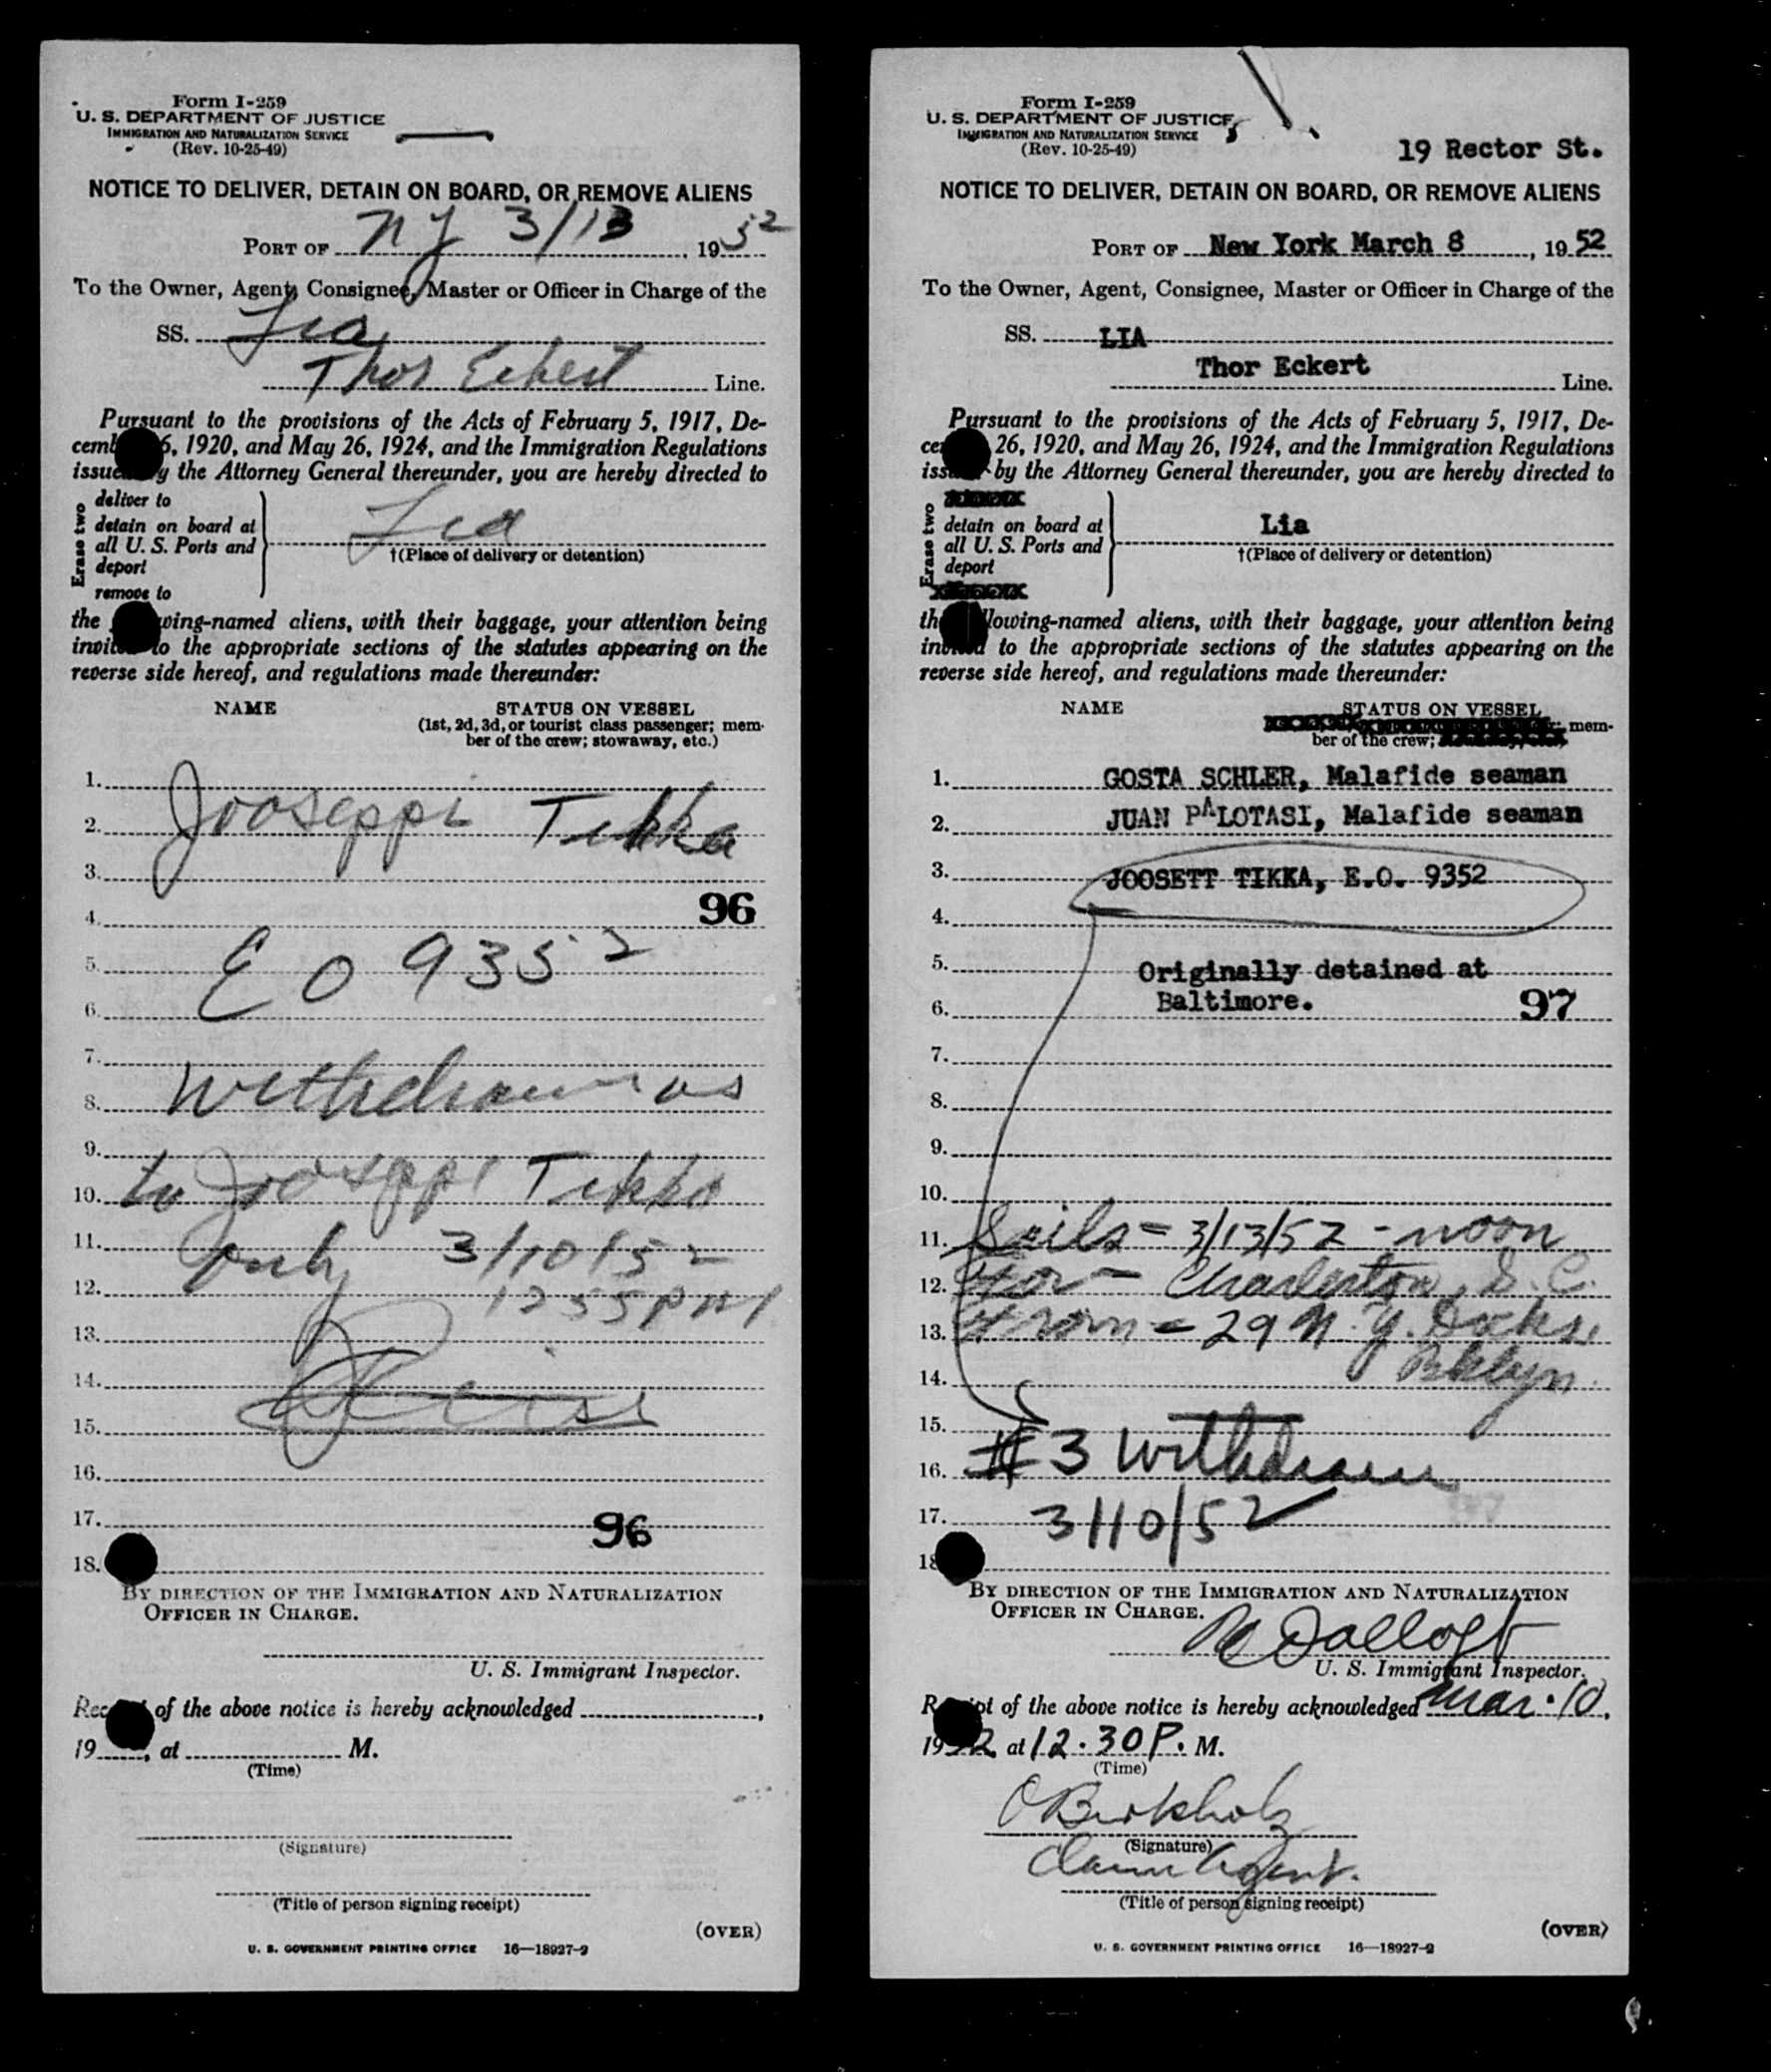 Form I-259
U. S. DEPARTMENT OF JUSTICE
IMMIGRATION AND NATURALIZATION SERVICE
(Rev. 10-25-49)
NOTICE TO DELIVER, DETAIN ON BOARD, OR REMOVE ALIENS
PORT OF NY 3/13, 1952
To the Owner, Agent, Consignee, Master or Officer in Charge of the
SS. Lia
Thor Eckert Line.
Pursuant to the provisions of the Acts of February 5, 1917, De-
cemb 6, 1920, and May 26, 1924, and the Immigration Regulations
issue y the Attorney General thereunder, you are hereby directed to
Erase two
deliver to
detain on board at
all U. S. Ports and
deport
remove to
Lia
†(Place of delivery or detention)
the wing-named aliens, with their baggage, your attention being
invite to the appropriate sections of the statutes appearing on the
reverse side hereof, and regulations made thereunder:
NAME STATUS ON VESSEL
(1st, 2d, 3d, or tourist class passenger; mem-
ber of the crew; stowaway, etc.)
1.
2. Jooseppi Tikka
3.
96
4.
5. E O 9352
6.
7.
8. Withdrawn as
9.
10. to Jooseppi Tikka
11. only 3/10/52
12. 1255 PM
13.
14.
15.
16.
17. 96
18.
BY DIRECTION OF THE IMMIGRATION AND NATURALIZATION
OFFICER IN CHARGE.
U. S. Immigrant Inspector.
Rec of the above notice is hereby acknowledged ,
19 , at M.
(Time)
(Signature)
(Title of person signing receipt)
(OVER)
U. S. GOVERNMENT PRINTING OFFICE 16—18927-2
Form I-259
U. S. DEPARTMENT OF JUSTICE
IMMIGRATION AND NATURALIZATION SERVICE
(Rev. 10-25-49)
19 Rector St.
NOTICE TO DELIVER, DETAIN ON BOARD, OR REMOVE ALIENS
PORT OF New York March 8, 1952
To the Owner, Agent, Consignee, Master or Officer in Charge of the
SS. LIA
Thor Eckert Line.
Pursuant to the provisions of the Acts of February 5, 1917, De-
ce 26, 1920, and May 26, 1924, and the Immigration Regulations
iss by the Attorney General thereunder, you are hereby directed to
Erase two
detain on board at
all U. S. Ports and
deport
Lia
†(Place of delivery or detention)
th llowing-named aliens, with their baggage, your attention being
invited to the appropriate sections of the statutes appearing on the
reverse side hereof, and regulations made thereunder:
NAME STATUS ON VESSEL
mem-
ber of the crew;
1. GOSTA SCHLER, Malafide seaman
2. JUAN PALOTASI, Malafide seaman
3. JOOSETT TIKKA, E.O. 9352
4.
5. Originally detained at
6. Baltimore. 97
7.
8.
9.
10.
11. Sails = 3/13/52 - noon
12. For - Charleston, S. C.
13. From = 29 N. Y. Docks,
14. Bklyn.
15.
16. #3 Withdrawn
17. 3/10/52
18
BY DIRECTION OF THE IMMIGRATION AND NATURALIZATION
OFFICER IN CHARGE.
U. S. Immigrant Inspector.
R ipt of the above notice is hereby acknowledged Mar. 10,
1952 at 12.30 P. M.
(Time)
O Birkholz
(Signature)
Claim Agent.
(Title of person signing receipt)
(OVER)
U. S. GOVERNMENT PRINTING OFFICE 16—18927-2